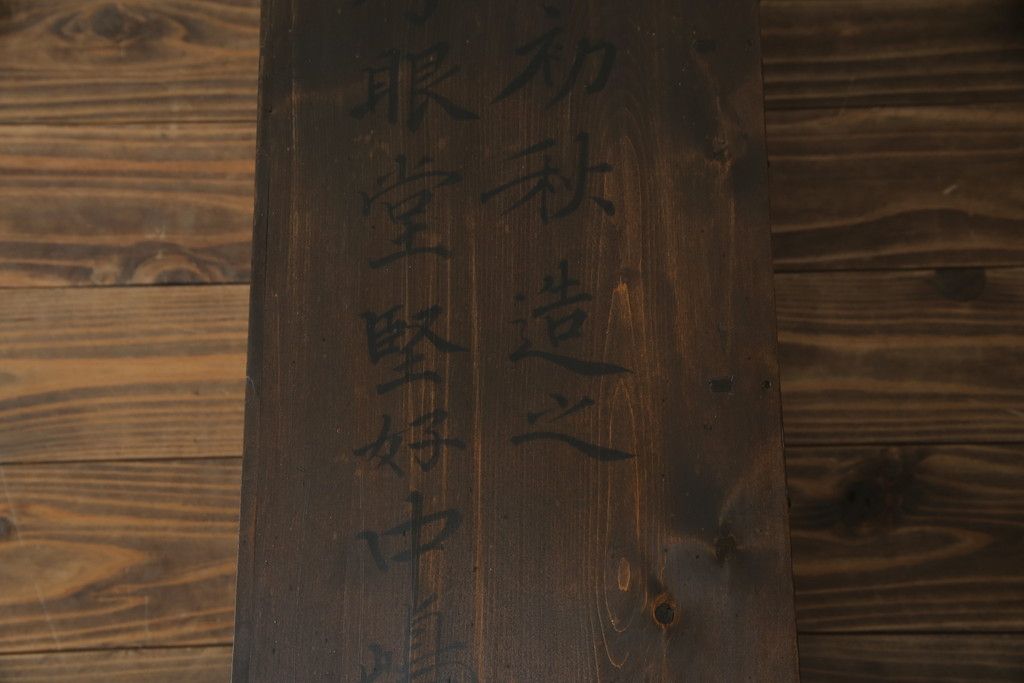 初秋造之
眼堂堅好中嶋